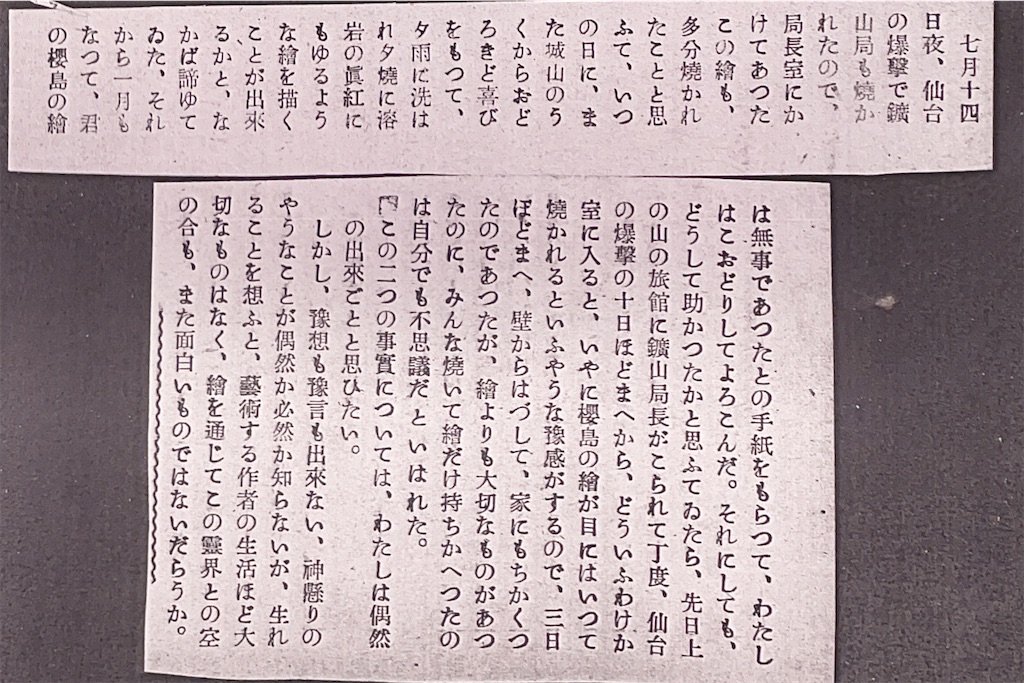 七月十四
日夜、仙台
の爆擊で鑛
山局も燒か
れたので、
局長室にか
けてあつた
この繪も、
多分燒かれ
たことと思
ふて、いつ
の日に、ま
た城山のう
くからおど
ろきど喜び
をもつて、
夕雨に洗は
れ夕燒に溶
岩の眞紅に
もゆるよう
な繪を描く
ことが出來
るかと、な
かば諦ゆて
ゐた、それ
から一月も
なつて、君
の櫻島の繪
は無事であつたとの手紙をもらつて、わたし
はこおどりしてよろこんだ。それにしても、
どうして助かつたかと思ふてゐたら、先日上
の山の旅館に鑛山局長がこられて丁度、仙台
の爆擊の十日ほどまへから、どういふわけか
室に入ると、いやに櫻島の繪が目にはいつて
燒かれるといふやうな豫感がするので、三日
ほどまへ、壁からはづして、家にもちかくつ
たのであつたが、繪よりも大切なものがあつ
たのに、みんな燒いて繪だけ持ちかへつたの
は自分でも不思議だといはれた。
この二つの事實については、わたしは偶然
の出來ごとと思ひたい。
しかし、豫想も豫言も出來ない、神懸りの
やうなことが偶然か必然か知らないが、生れ
ることを想ふと、藝術する作者の生活ほど大
切なものはなく、繪を通じてこの靈界との空
の合も、また面白いものではないだらうか。